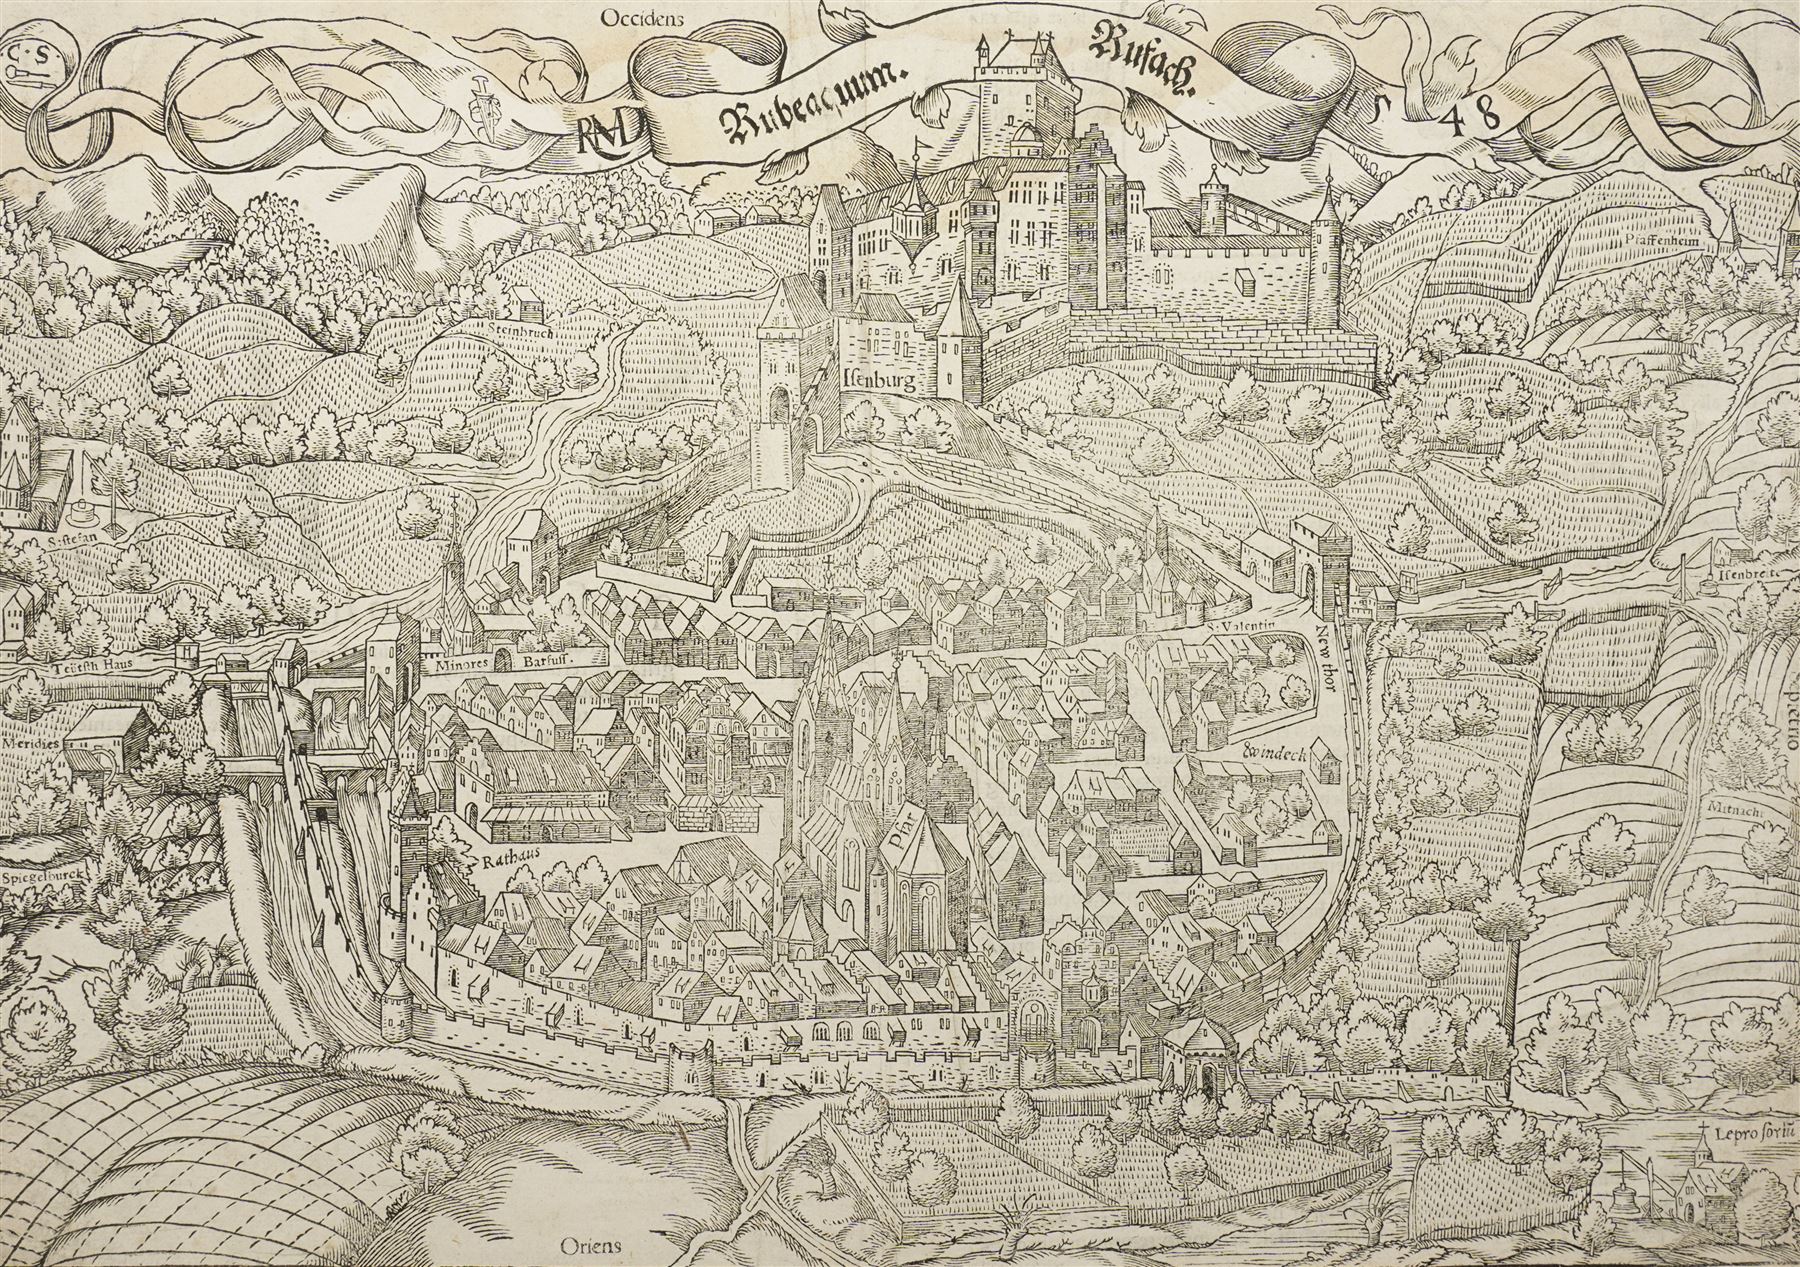 Occidens
C·S·
RMD
Rubeaquum.
Rufach.
1548
Pfaffenheim
Steinbruch
Isenburg
S. stefan
Isenbreit
S. Valentin
New thor
Teütsh Haus
Minores Barfuss.
Meridies
Zwindeck
Spiegelburck
Rathaus
Pfar
Leprosoriū
Oriens